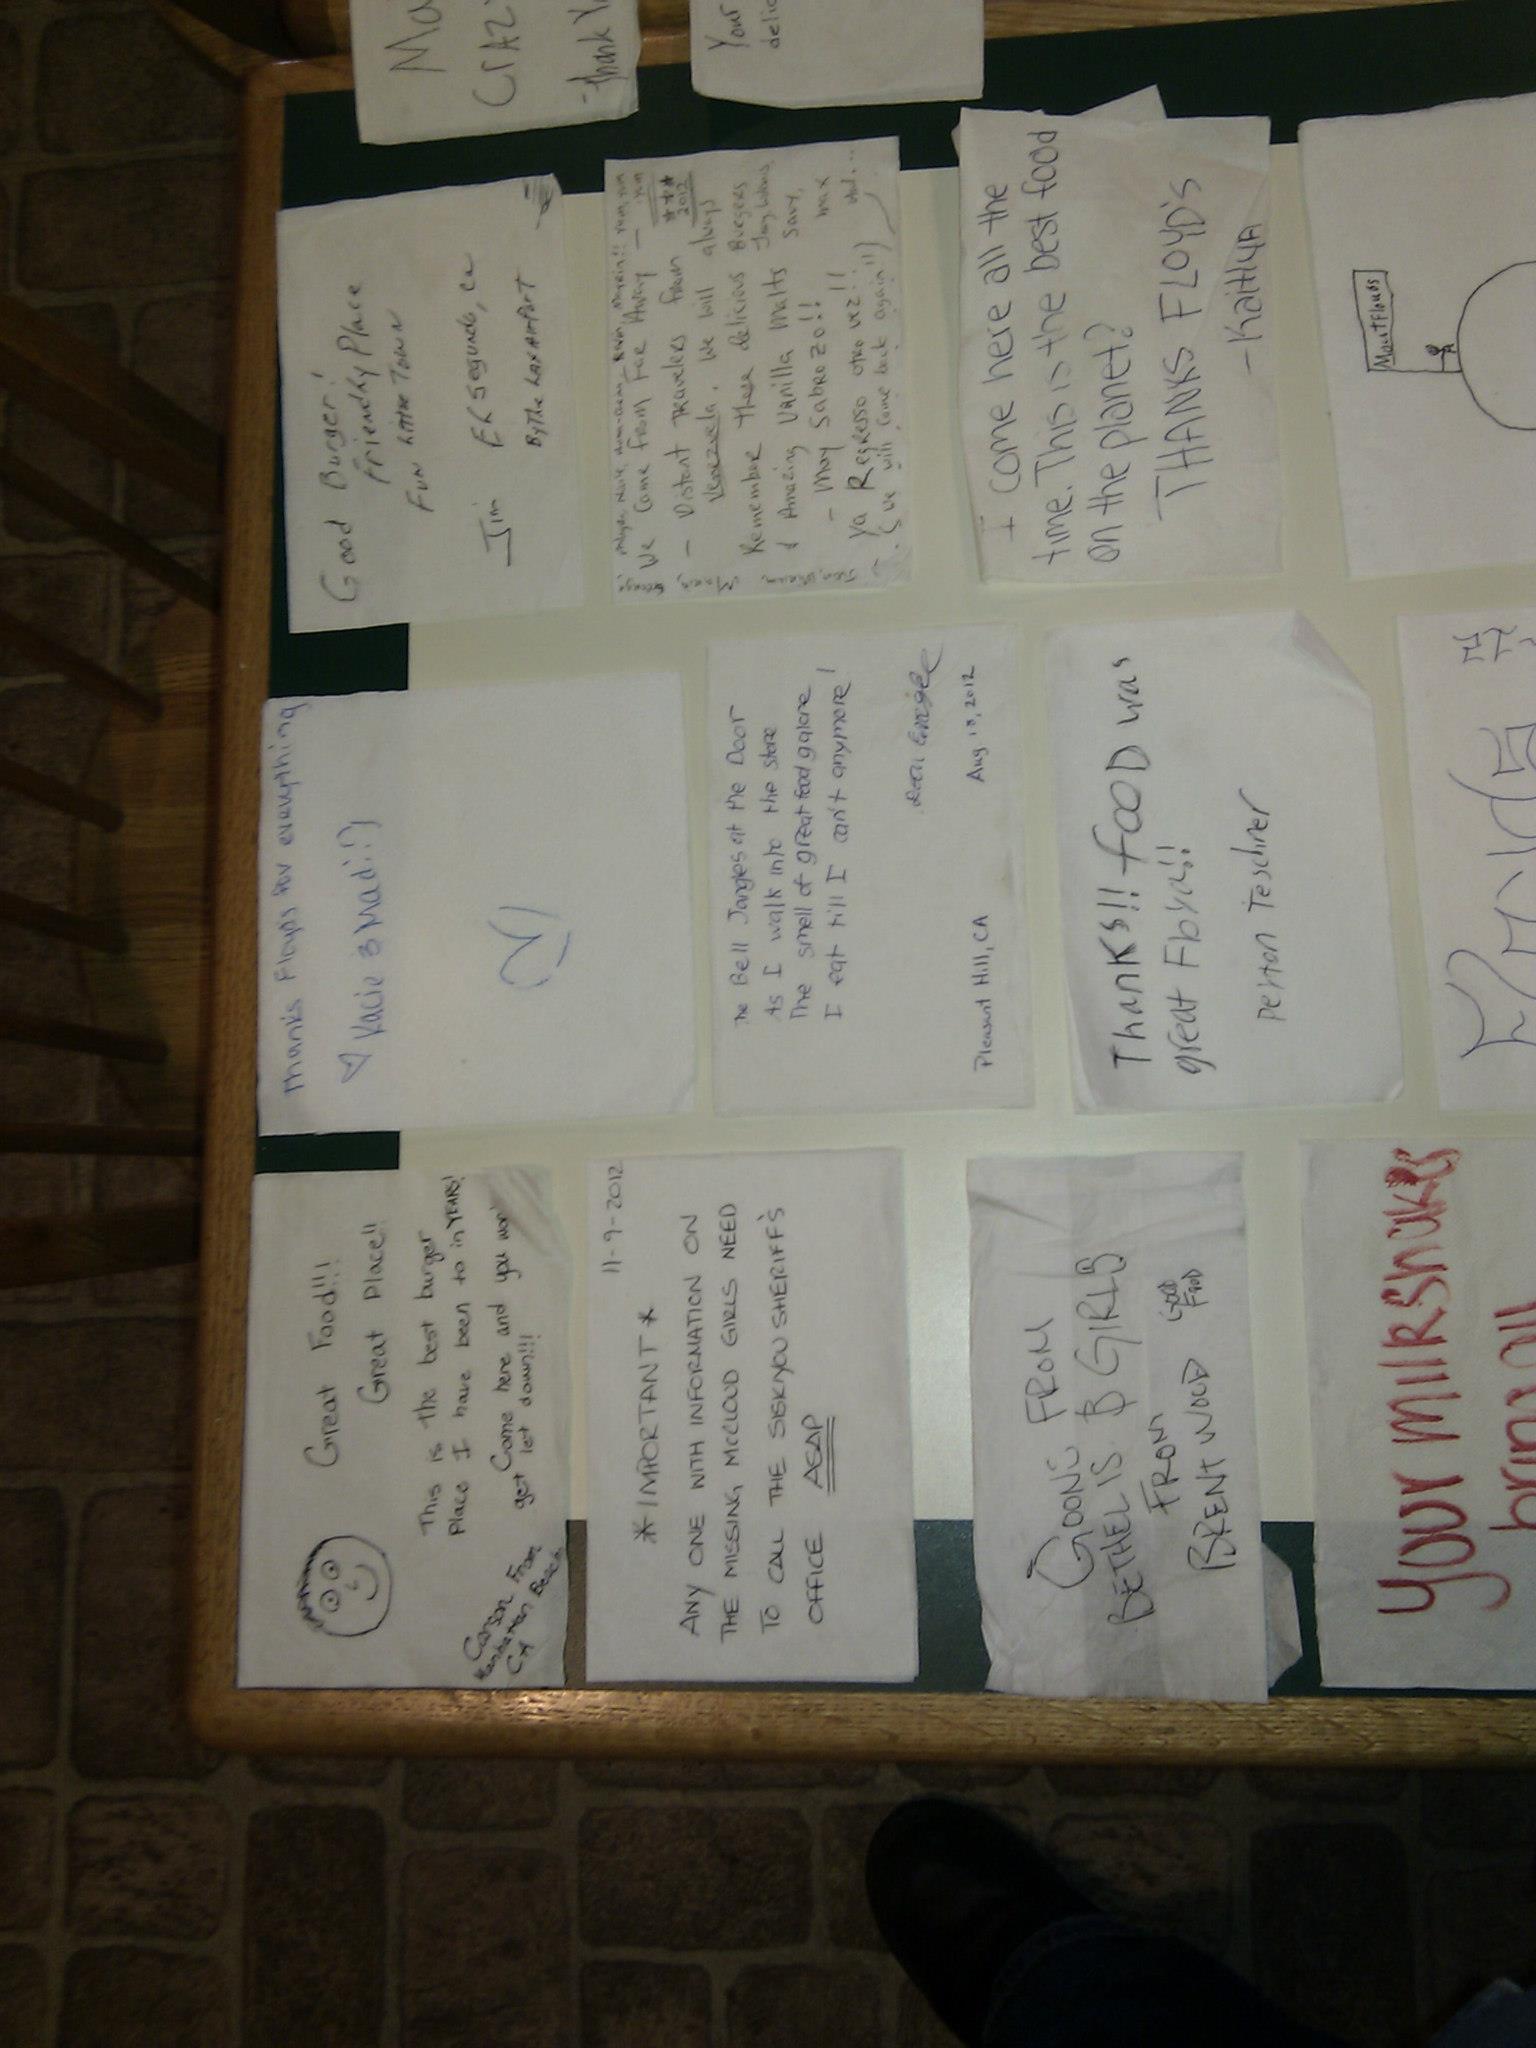 Great Food!!!
Great Place!!
This is the best burger
Place I have been to in YEARS!
Come here and you won'
get let down!!!
Carson From
Manhattan Beach
CA
thanks Floyds for everything
♡ Kacie & Madi :)
Good Burger!
Friendly Place
Fun Little Town
Jim El Segundo, ca
By the LAX AIRPORT
11-9-2012
*IMPORTANT*
ANY ONE WITH INFORMATION ON
THE MISSING McCLOUD GIRLS NEED
TO CALL THE SISKIYOU SHERIFF'S
OFFICE ASAP
The Bell Jangles at the Door
As I walk into the store
The smell of great food galore
I eat till I can't anymore!
Pleasant Hill, CA Aug 10, 2012
We Come From Far Away
2012
- Distant travelers from
Venezuela. We will always
Remember these delicious Burgers
& Amazing Vanilla Malts
- Muy Sabrozo!!
Ya Regresso otro vez!!
(we will come back again!!)
GOONS FROM
BETHEL IS. & GIRLS
FROM
BRENTWOOD GOOD FOOD
Thanks!! food was
great Floyd!!
Peyton Teschner
I come here all the
time. This is the best food
on the planet?
THANKS FLOYD'S
-Kaitlyn
Your MilkShakes
bring all
Your
delic
CrAZY
thank Y